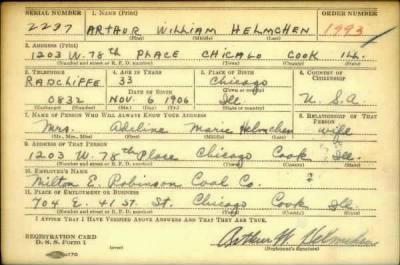 SERIAL NUMBER 1. NAME (Print) ORDER NUMBER
2297 ARTHUR WILLIAM HELMCHEN 1993
(First) (Middle) (Last)
2. ADDRESS (Print)
1203 W. 78th PLACE CHICAGO COOK ILL.
(Number and street or R. F. D. number) (Town) (County) (State)
3. TELEPHONE 4. AGE IN YEARS 5. PLACE OF BIRTH 6. COUNTRY OF CITIZENSHIP
RADCLIFFE 33 Chicago
DATE OF BIRTH
0832 NOV. 6 1906 Ill. U.S.A.
(Exchange) (Number) (Mo.) (Day) (Yr.) (Town or county) (State or country)
7. NAME OF PERSON WHO WILL ALWAYS KNOW YOUR ADDRESS 8. RELATIONSHIP OF THAT PERSON
Mrs. Adeline Marie Helmchen wife
(Mr., Mrs., Miss) (First) (Middle) (Last)
9. ADDRESS OF THAT PERSON
1203 W. 78th Place Chicago Cook Ill.
(Number and street or R. F. D. number) (Town) (County) (State)
10. EMPLOYER'S NAME
Milton E. Robinson Coal Co.
11. PLACE OF EMPLOYMENT OR BUSINESS
704 E. 41 ST. St. Chicago Cook Ill.
(Number and street or R. F. D. number) (Town) (County) (State)
I AFFIRM THAT I HAVE VERIFIED ABOVE ANSWERS AND THAT THEY ARE TRUE.
REGISTRATION CARD
D. S. S. Form 1 Arthur W. Helmchen
(Registrant's signature)